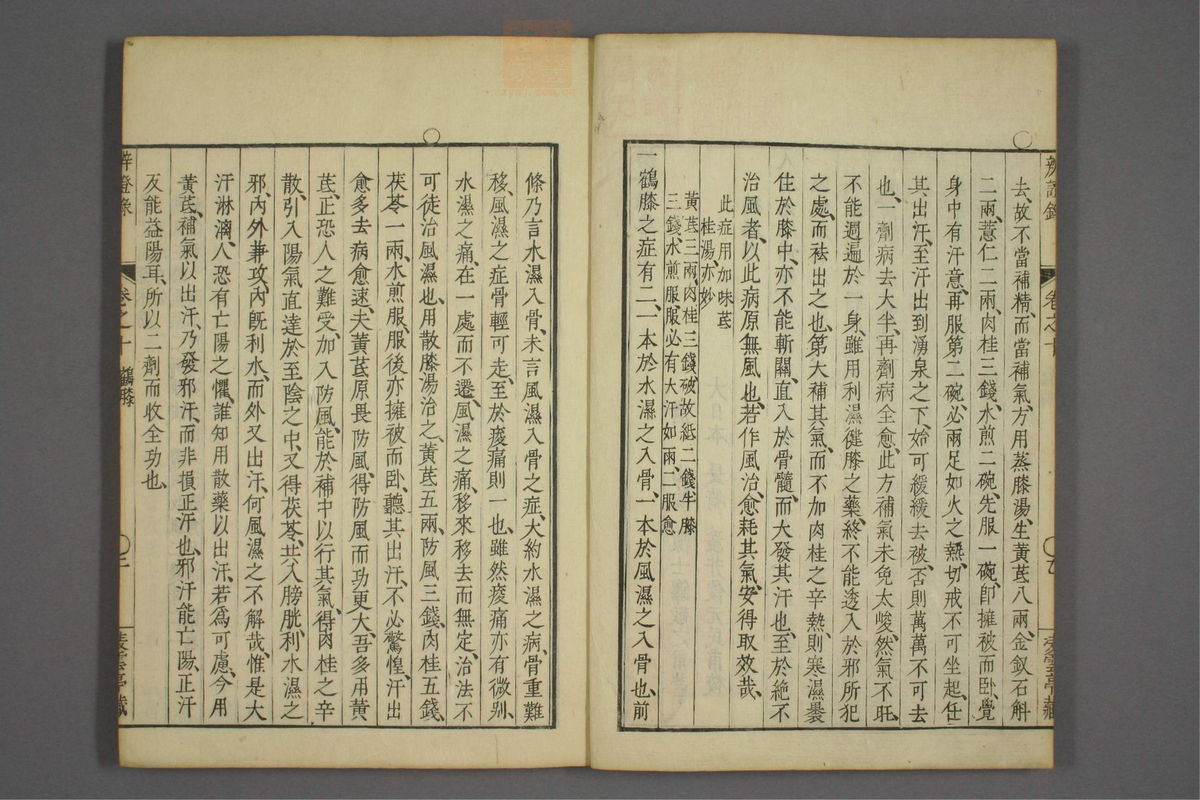 去、故不當補精、而當補氣、方用蒸膝湯、生黃芪八兩、金釵石斛
二兩、薏仁二兩、肉桂三錢、水煎二碗、先服一碗、卽擁被而臥、覺
身中有汗意、再服第二碗、必兩足如火之熱、切戒不可坐起、任
其出汗、至汗出到湧泉之下、始可緩緩去被、否則萬萬不可去
也、一劑病去大半、再劑病全愈、此方補氣未免太峻、然氣不旺、
不能週遍於一身、雖用利濕健膝之藥、終不能透入於邪所犯
之處、而祛出之也、第大補其氣、而不加肉桂之辛熱、則寒濕裹
住於膝中、亦不能斬關、直入於骨髓、而大發其汗也、至於絶不
治風者、以此病原無風也、若作風治、愈耗其氣、安得取效哉、
此症用加味芪
桂湯、亦妙
黃芪三兩、肉桂三錢、破故紙二錢、牛膝
三錢、水煎服、服必有大汗如雨、二服愈
一鶴膝之症有二、一本於水濕之入骨、一本於風濕之入骨也、前
辨證錄 卷之十
愛雲亭藏
條乃言水濕入骨、未言風濕入骨之症、大約水濕之病、骨重難
移、風濕之症骨輕可走、至於痠痛則一也、雖然痠痛亦有微别、
水濕之痛、在一處而不遷、風濕之痛、移來移去而無定、治法不
可徒治風濕也、用散膝湯治之、黃芪五兩、防風三錢、肉桂五錢、
茯苓一兩、水煎服、服後亦擁被而臥、聽其出汗、不必驚惶、汗出
愈多去病愈速、夫黃芪原畏防風、得防風而功更大、吾多用黃
芪、正恐人之難受、加入防風、能於補中以行其氣、得肉桂之辛
散、引入陽氣直達於至陰之中、又得茯苓、共入膀胱、利水濕之
邪、內外兼攻、內旣利水、而外又出汗、何風濕之不解哉、惟是大
汗淋漓、人恐有亡陽之懼、誰知用散藥以出汗、若爲可慮、今用
黃芪、補氣以出汗、乃發邪汗、而非損正汗也、邪汗能亡陽、正汗
反能益陽耳、所以二劑而收全功也、
辨證錄 卷之十 鶴膝